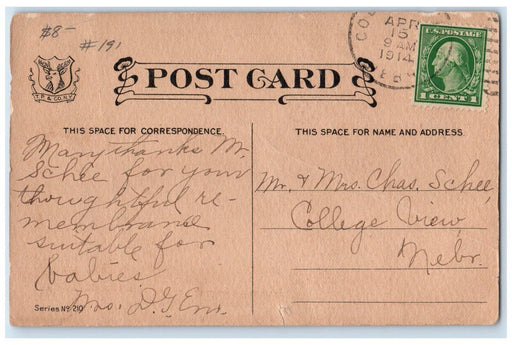 $8-
#191
APR
15
9 AM
1914
U.S. POSTAGE
1 CENT 1
POST CARD
THIS SPACE FOR CORRESPONDENCE.
THIS SPACE FOR NAME AND ADDRESS.
Many thanks Mr.
Schee for your
thoughtful re-
membrance
suitable for
babies
Mrs. D. G.
Mr. & Mrs. Chas. Schee,
College View,
Nebr.
Series No 210